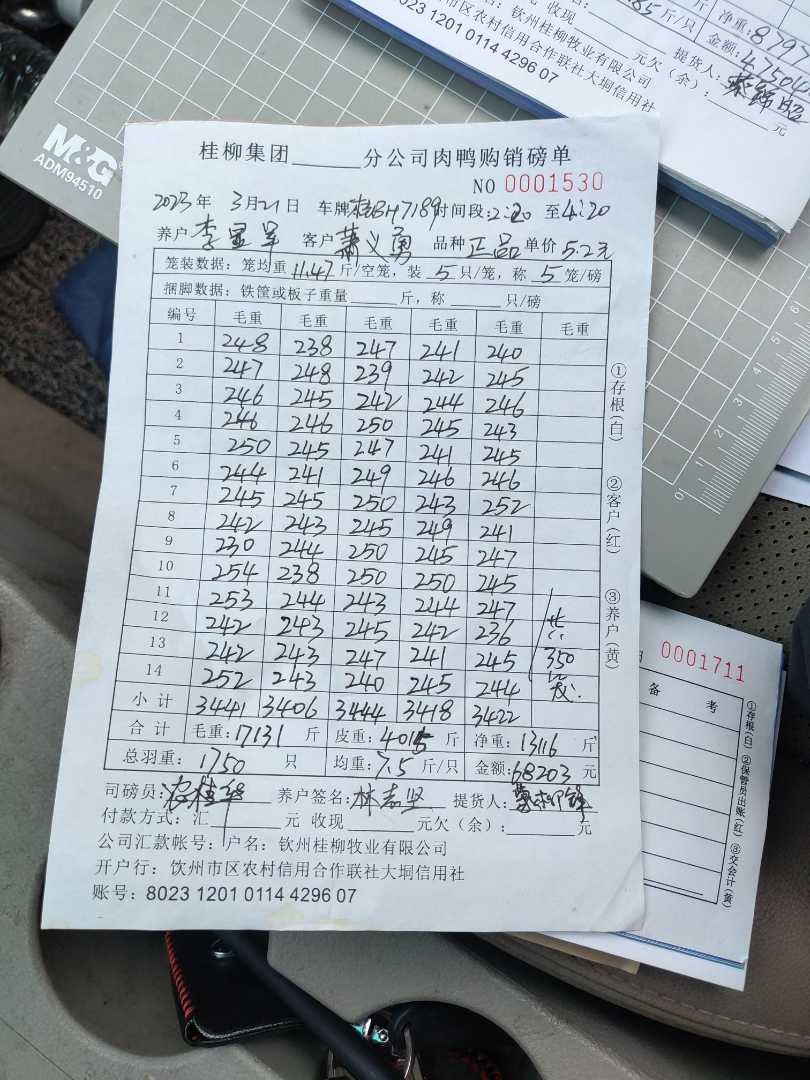 85斤/只
净重:8797
收现
元欠(余):
提货人:
金额:47504
元
钦州桂柳牧业有限公司
市区农村信用合作联社大垌信用社
8023 1201 0114 4296 07
M&G
ADM94510
桂柳集团______分公司肉鸭购销磅单
NO 0001530
2023年 3月21日 车牌 桂BH7189 时间段:2:20 至4:20
养户 李 军 客户 萧义勇 品种 正品 单价 5.2元
笼装数据:笼均重 11.47 斤/空笼,装 5 只/笼,称 5 笼/磅
捆脚数据:铁筐或板子重量______斤,称______只/磅
编号 毛重 毛重 毛重 毛重 毛重 毛重
1 248 238 247 241 240
2 247 248 239 242 245
3 246 245 242 244 246
4 246 246 250 245 243
5 250 245 247 241 245
6 244 241 249 246 246
7 245 245 250 243 252
8 242 243 245 249 241
9 230 244 250 245 247
10 254 238 250 250 245
11 253 244 243 244 247
12 242 243 245 242 236 共
13 242 243 247 241 245 350
14 252 243 240 245 244
小计 3441 3406 3444 3418 3422
合计 毛重:17131 斤 皮重:4015 斤 净重:13116 斤
总羽重:1750 只 均重:7.5 斤/只 金额:68203 元
司磅员: 养户签名:林志坚 提货人:
付款方式:汇______元 收现______元欠(余):______元
公司汇款帐号:户名:钦州桂柳牧业有限公司
开户行:饮州市区农村信用合作联社大垌信用社
账号:8023 1201 0114 4296 07
①存根(白) ②客户(红) ③养户(黄)
0001711
备 考
①存根(白) ②保管员出账(红) ③交会计(黄)
0 1 2 3 4 5 6